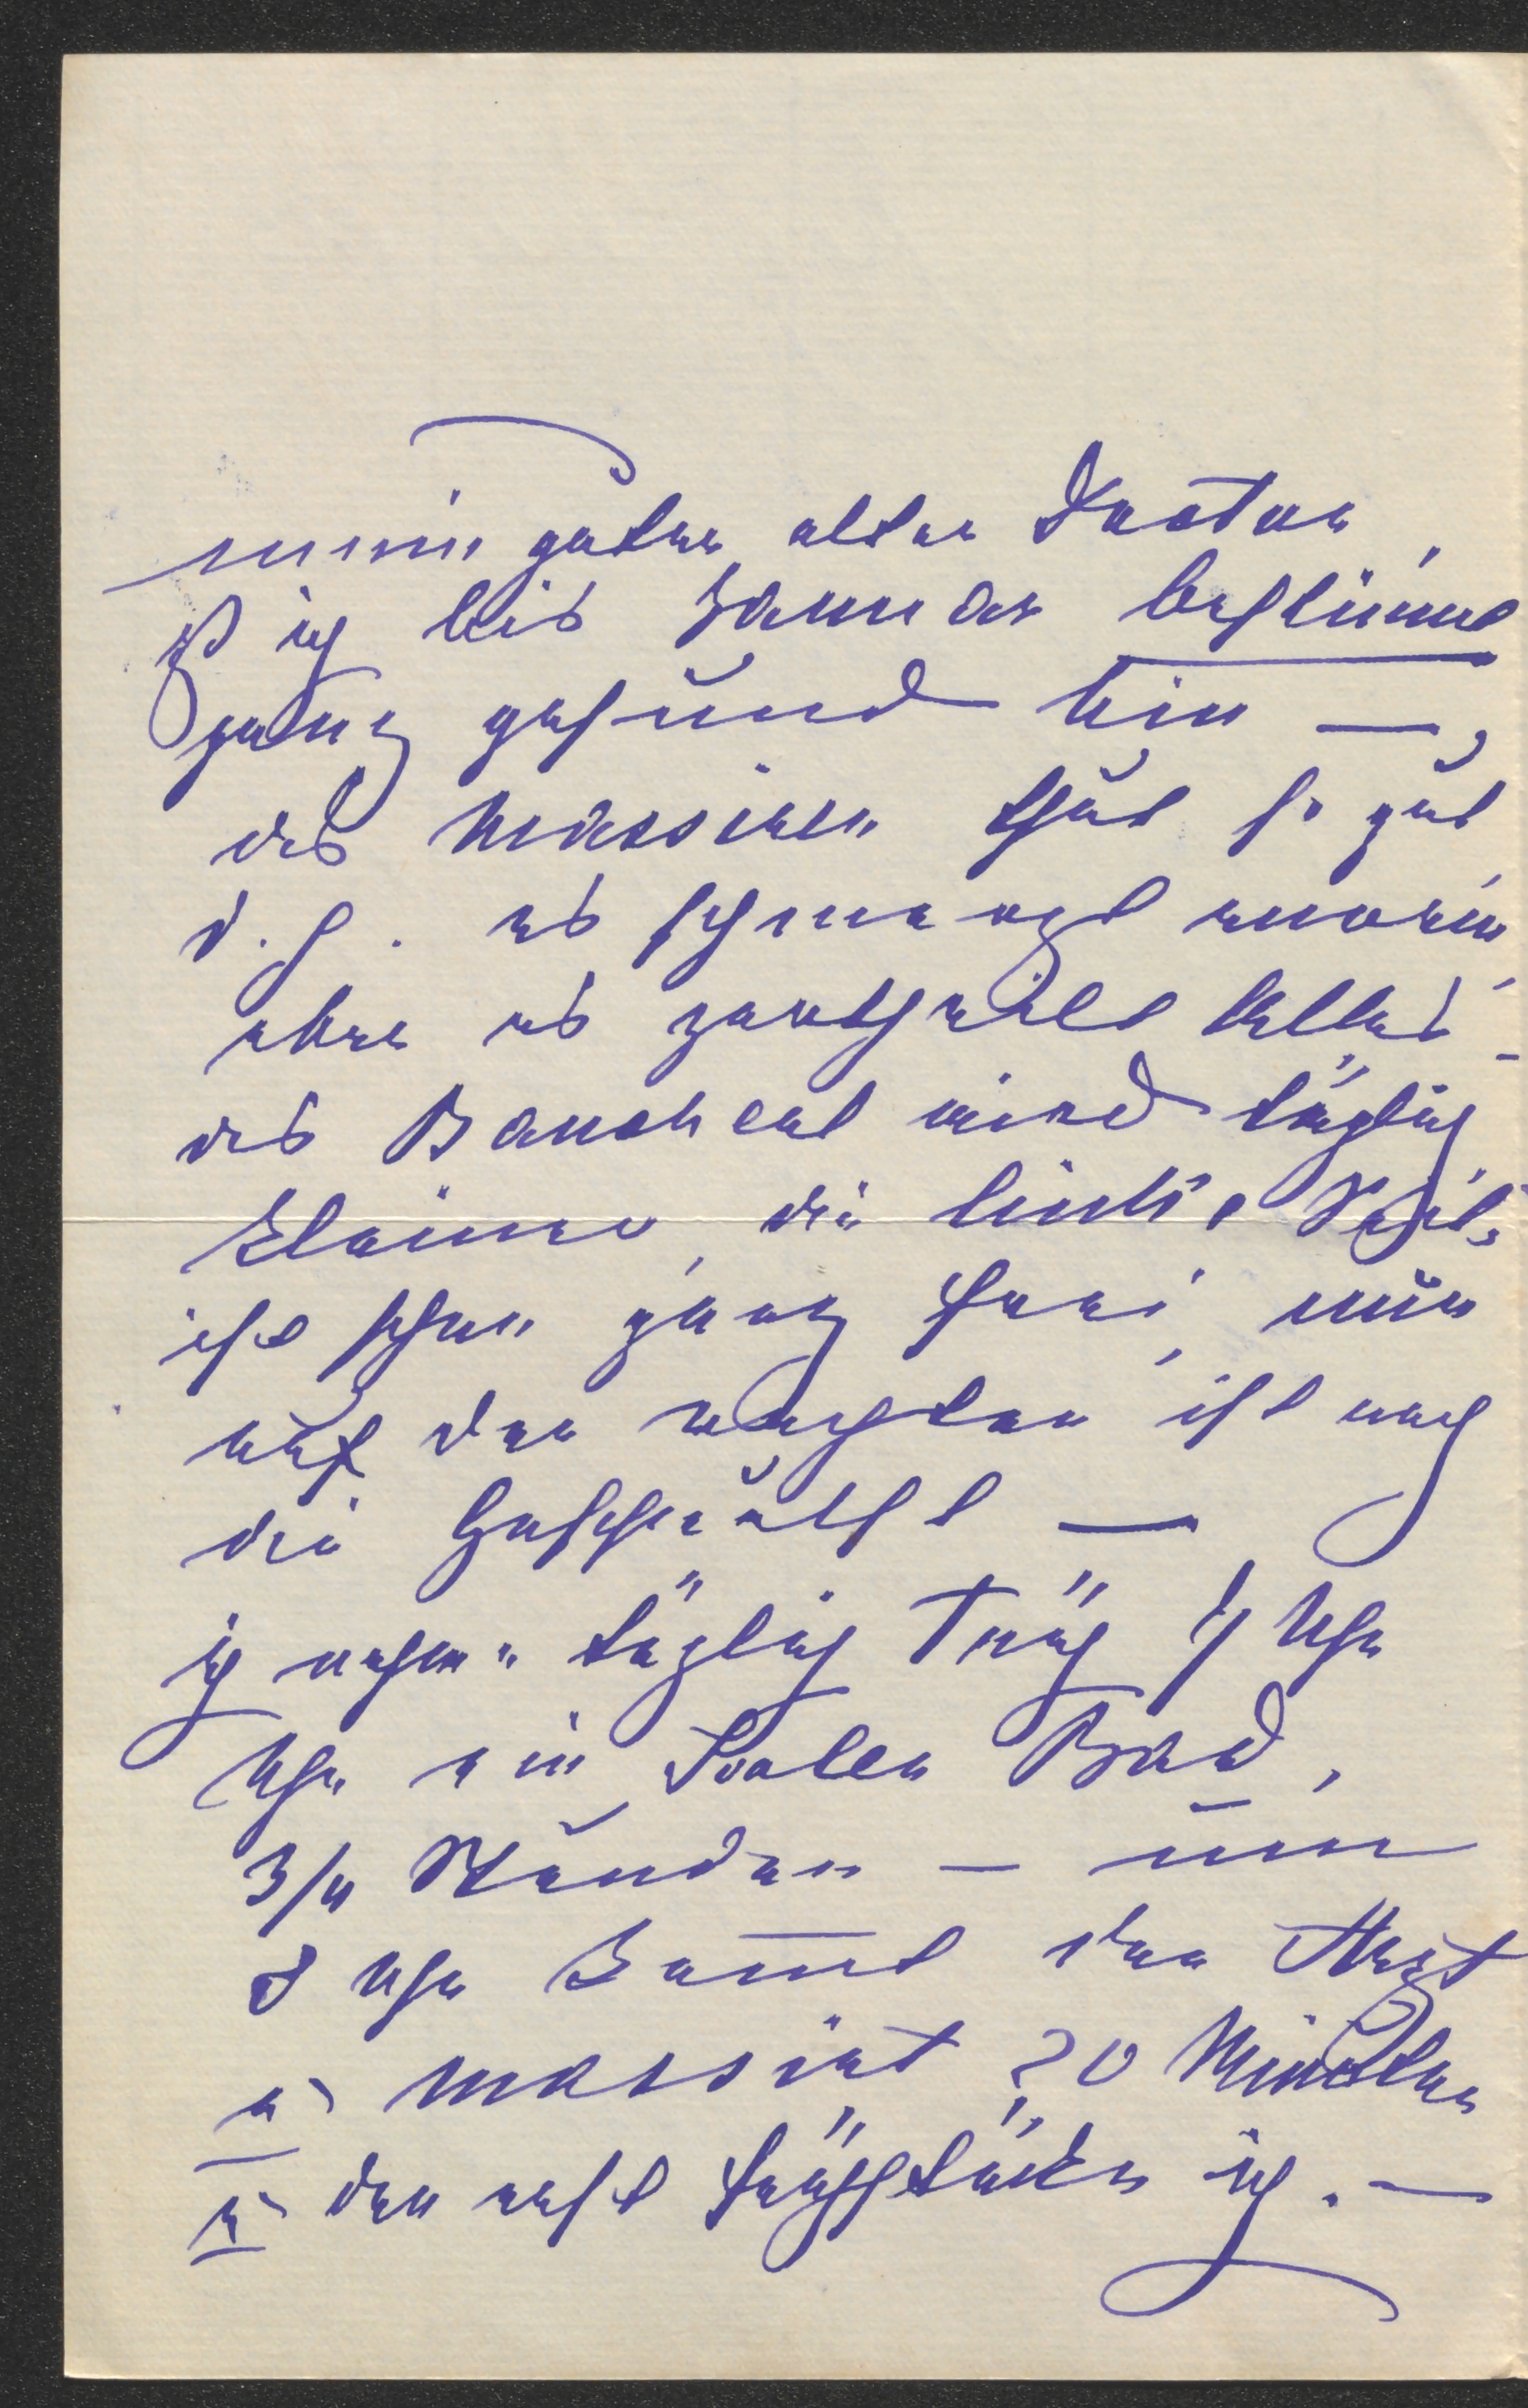 mein guter alter Doctor,
ß ich bis Januar bestimmt
ganz gesund bin —,
das Massieren thut so gut
d. h. es schmerzt enorm,
aber es zertheilt Alles –
das Bauch wird täglich
kleiner, die linke Seite
ist schon ganz frei, nur
auf der rechten ist noch
die Geschwulst —
ich nehme täglich Früh 7 Uhr
Uhr ein Soolen Bad,
3/4 Stunden — um
8 Uhr kommt der Arzt
u massirt 20 Minuten
u dan erst frühstücke ich. —